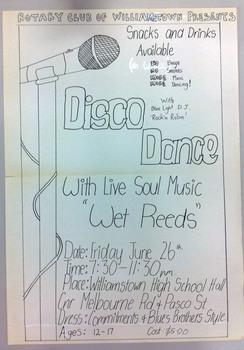 ROTARY CLUB OF WILLIAMSTOWN PRESENTS
Snacks and Drinks
Available
NO Booze
NO Smokes
Music
Dancing!
With
Blue Light D.J.
'Rock'n Robin'
Disco
Dance
With Live Soul Music
"Wet Reeds"
Date: Friday June 26th
Time: 7:30-11:30pm
Place: Williamstown High School Hall
Cnr Melbourne Rd & Pasco St
Dress: Commitments & Blues Brothers Style
Ages: 12-17 Cost: $5.00